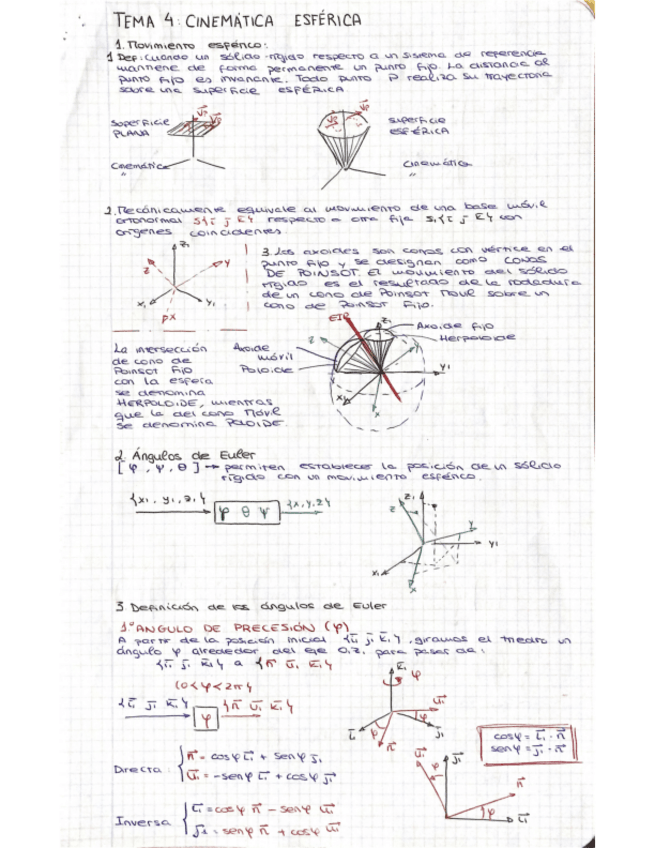 TEMA 4: CINEMÁTICA ESFÉRICA
1. Movimiento esférico:
1 Def: Cuando un sólido rígido respecto a un sistema de referencia
mantiene de forma permanente un punto fijo. La distancia al
punto fijo es invariante. Todo punto P realiza su trayectoria
sobre una superficie ESFÉRICA
Superficie
PLANA
Cinemática
"
superficie
ESFÉRICA
Cinemática
"
2. Mecánicamente equivale al movimiento de una base móvil
ortonormal S{i j k} respecto a otra fija S1{i j k} con
orígenes coincidentes.
3. Los axoides son conos con vértice en el
punto fijo y se designan como CONOS
DE POINSOT. El movimiento del sólido
rígido es el resultado de la rodadura
de un cono de Poinsot Móvil sobre un
cono de Poinsot Fijo.
z1 z y x1 y1 x
La intersección
de cono de
Poinsot Fijo
con la esfera
se denomina
HERPOLOIDE, mientras
que la del cono Móvil
se denomina POLOIDE.
EIR
Axoide fijo
Herpoloide
Axoide
móvil
Poloide
z1 z y y1 x1 x
2. Ángulos de Euler
[φ, ψ, θ] → permiten establecer la posición de un sólido
rígido con un movimiento esférico.
{x1, y1, z1} φ θ ψ {x, y, z}
z1 z y y1 x1 x
3 Definición de los ángulos de Euler
1º ANGULO DE PRECESIÓN (φ)
A partir de la posición inicial {i1 j1 k1}, giramos el triedro un
ángulo φ alrededor del eje O, z1 para pasar de:
{i1 j1 k1} a {n u1 k1}
(0<φ<2π)
{i1 j1 k1} φ {n u1 k1}
k1 φ u1 φ j1 i φ n
cosφ = i1 · n
senφ = j1 · n
Directa: n = cosφ i1 + senφ j1
u1 = -senφ i1 + cosφ j1
u1 φ j1 n φ i1
Inversa i1 = cosφ n - senφ u1
j1 = senφ n + cosφ u1